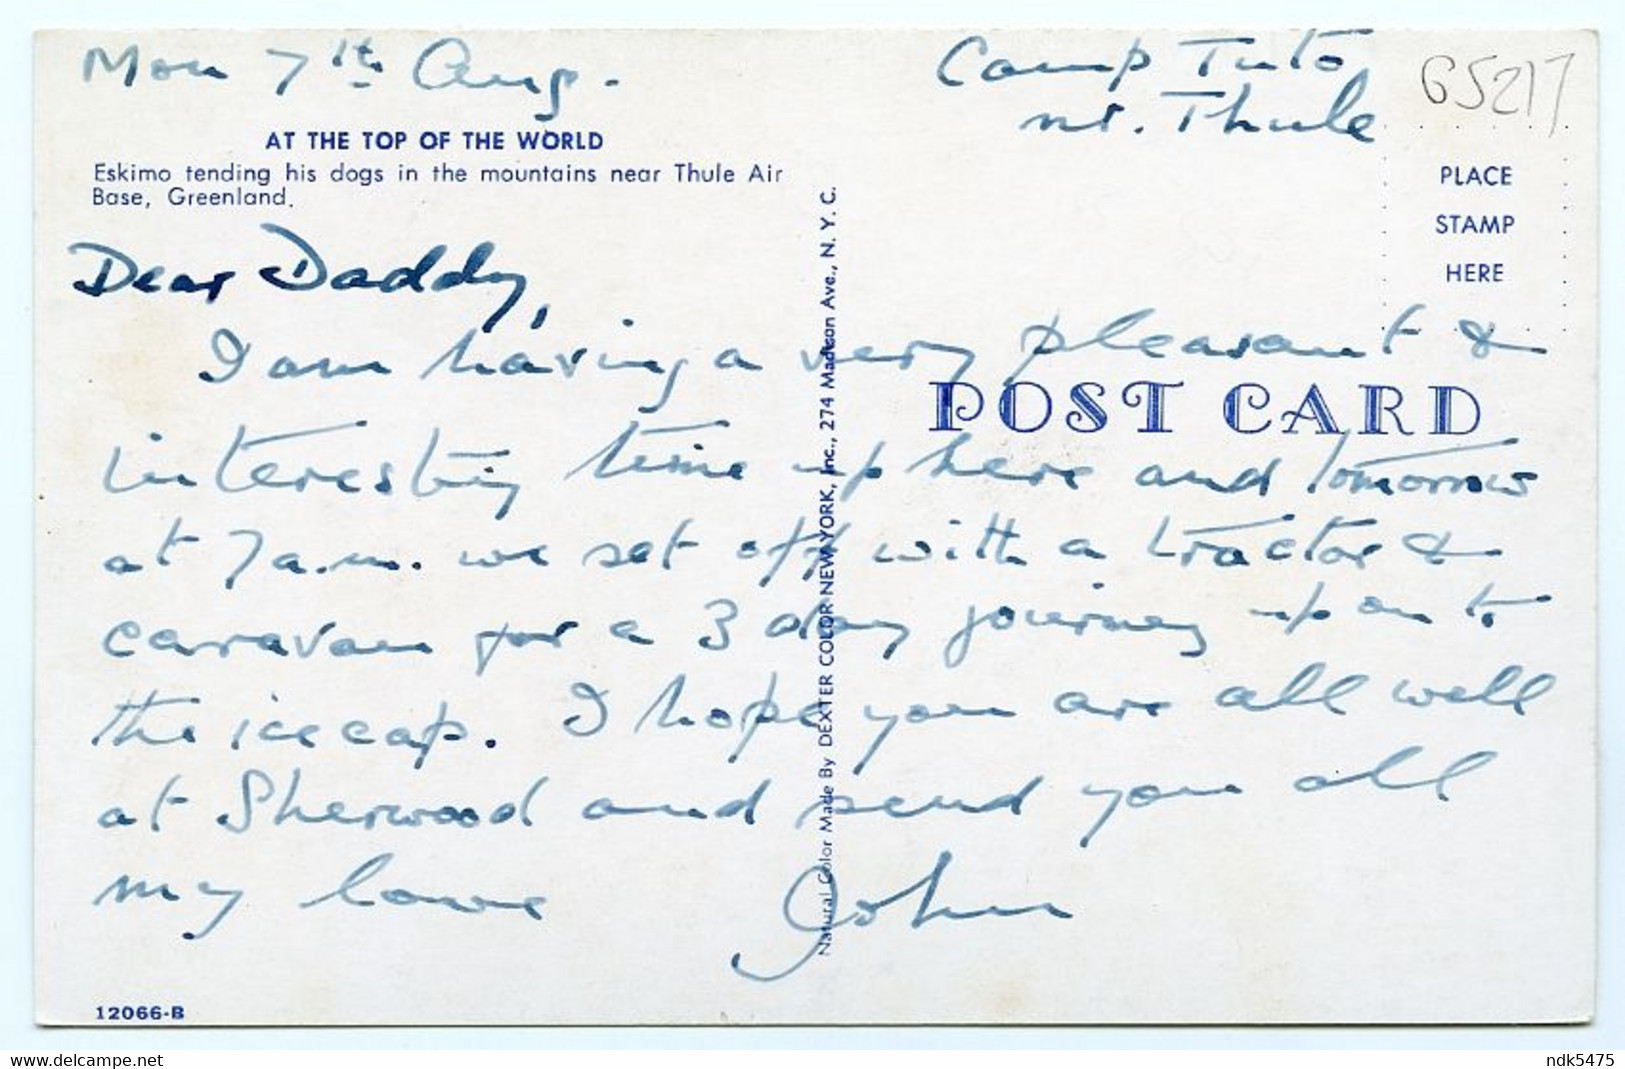 Mon 7th Aug.
Camp Tuto
nr. Thule
G5217
AT THE TOP OF THE WORLD
Eskimo tending his dogs in the mountains near Thule Air
Base, Greenland.
PLACE
STAMP
HERE
Dear Daddy,
I am having a very pleasant &
POST CARD
interesting time up here and tomorrow
at 7 a.m. we set off with a tractor &
caravan for a 3 day journey up on to
the icecap. I hope you are all well
at Sherwood and send you all
my love John
Natural Color Made By DEXTER COLOR NEW YORK, Inc., 274 Madison Ave., N. Y. C.
12066-B
the-military-collector.com
ndk5475